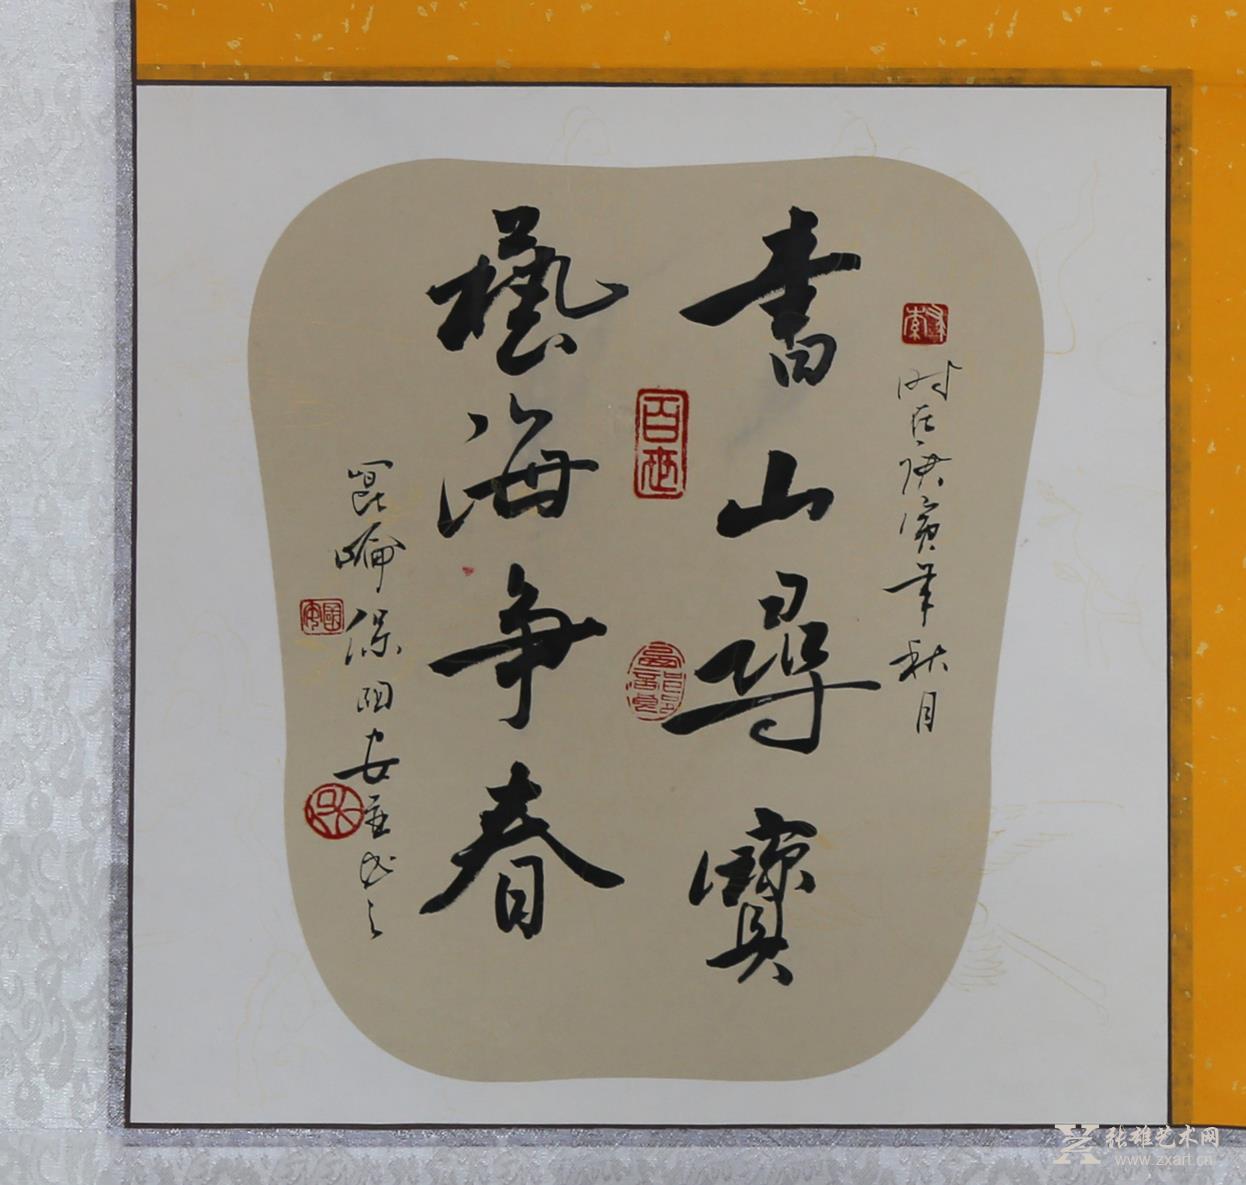 時在庚寅年秋月
書山尋寶
藝海爭春
崑崙保國安玉書之
百世
张雄艺术网
www.zxart.cn